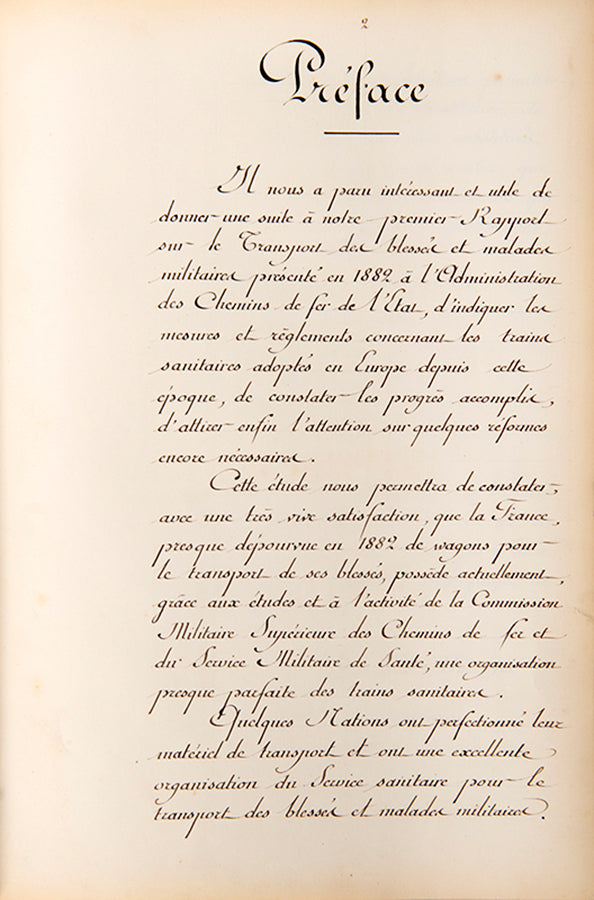 2
Préface
Il nous a paru intéressant et utile de
donner une suite à notre premier Rapport
sur le Transport des blessés et malades
militaires présenté en 1882 à l'Administration
des Chemins de fer de l'État, d'indiquer les
mesures et règlements concernant les trains
sanitaires adoptés en Europe depuis cette
époque, de constater les progrès accomplis,
d'attirer enfin l'attention sur quelques réformes
encore nécessaires.
Cette étude nous permettra de constater,
avec une très vive satisfaction, que la France,
presque dépourvue en 1882 de wagons pour
le transport de ses blessés, possède actuellement,
grâce aux études et à l'activité de la Commission
Militaire Supérieure des Chemins de fer et
du Service Militaire de Santé, une organisation
presque parfaite des trains sanitaires.
Quelques Nations ont perfectionné leur
matériel de transport et ont une excellente
organisation du Service sanitaire pour le
transport des blessés et malades militaires.